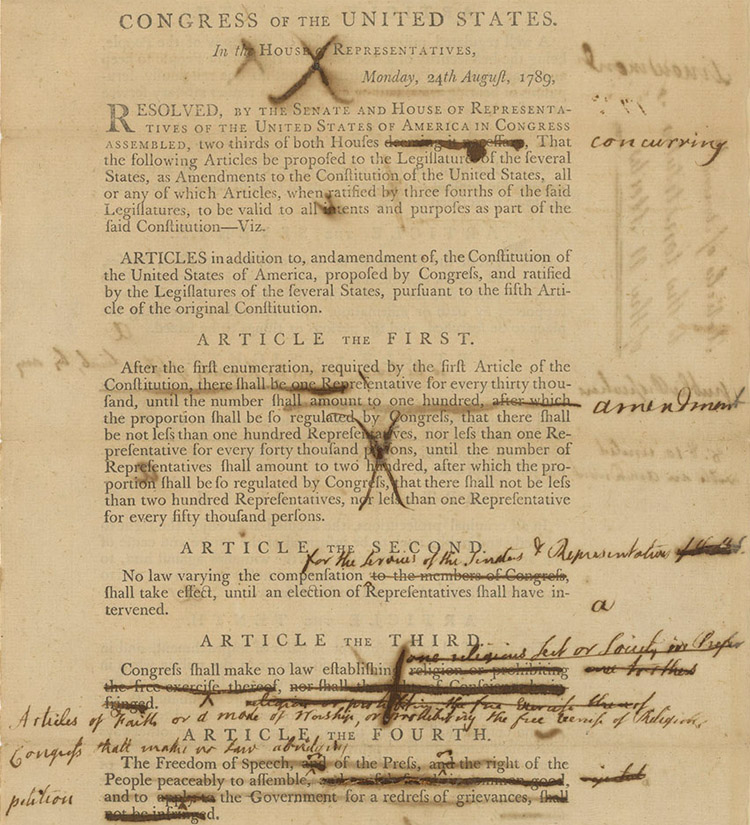 CONGRESS OF THE UNITED STATES.
In the HOUSE of REPRESENTATIVES,
Monday, 24th Auguſt, 1789,
RESOLVED, BY THE SENATE AND HOUSE OF REPRESENTA-
TIVES OF THE UNITED STATES OF AMERICA IN CONGRESS
ASSEMBLED, two thirds of both Houſes deeming it neceſſary, That
concurring
the following Articles be propoſed to the Legiſlatures of the ſeveral
States, as Amendments to the Conſtitution of the United States, all
or any of which Articles, when ratified by three fourths of the ſaid
Legiſlatures, to be valid to all intents and purpoſes as part of the
ſaid Conſtitution—Viz.
ARTICLES in addition to, and amendment of, the Conſtitution of
the United States of America, propoſed by Congreſs, and ratified
by the Legiſlatures of the ſeveral States, purſuant to the fifth Arti-
cle of the original Conſtitution.
ARTICLE THE FIRST.
After the firſt enumeration, required by the firſt Article of the
Conſtitution, there ſhall be one Repreſentative for every thirty thou-
ſand, until the number ſhall amount to one hundred, after which
amendment
the proportion ſhall be ſo regulated by Congreſs, that there ſhall
be not leſs than one hundred Repreſentatives, nor leſs than one Re-
preſentative for every forty thouſand perſons, until the number of
Repreſentatives ſhall amount to two hundred, after which the pro-
portion ſhall be ſo regulated by Congreſs, that there ſhall not be leſs
than two hundred Repreſentatives, nor leſs than one Repreſentative
for every fifty thouſand perſons.
ARTICLE THE SECOND.
for the services of the Senators & Representatives
No law varying the compenſation to the members of Congreſs,
ſhall take effect, until an election of Repreſentatives ſhall have in-
a
tervened.
ARTICLE THE THIRD.
one religious Sect or Society in Prefer
Congreſs ſhall make no law eſtabliſhing religion or prohibiting
ence to others
the free exerciſe thereof, nor ſhall the of Conſcience be
fringed.
religion or prohibiting the free Exercise thereof
Articles of Faith or a mode of Worship, or prohibiting the free Exercise of Religion,
ARTICLE THE FOURTH.
Congreſs shall make no Law abridging
The Freedom of Speech, and of the Preſs, and the right of the
People peaceably to aſſemble, and common good,
petition
and to apply to the Government for a redreſs of grievances, ſhall
not be infringed.